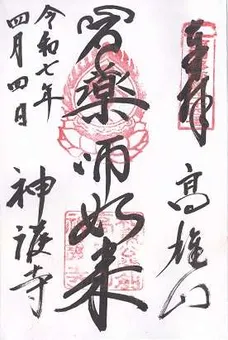 奉拝
高雄山
薬師如来
神護寺
令和七年
四月四日